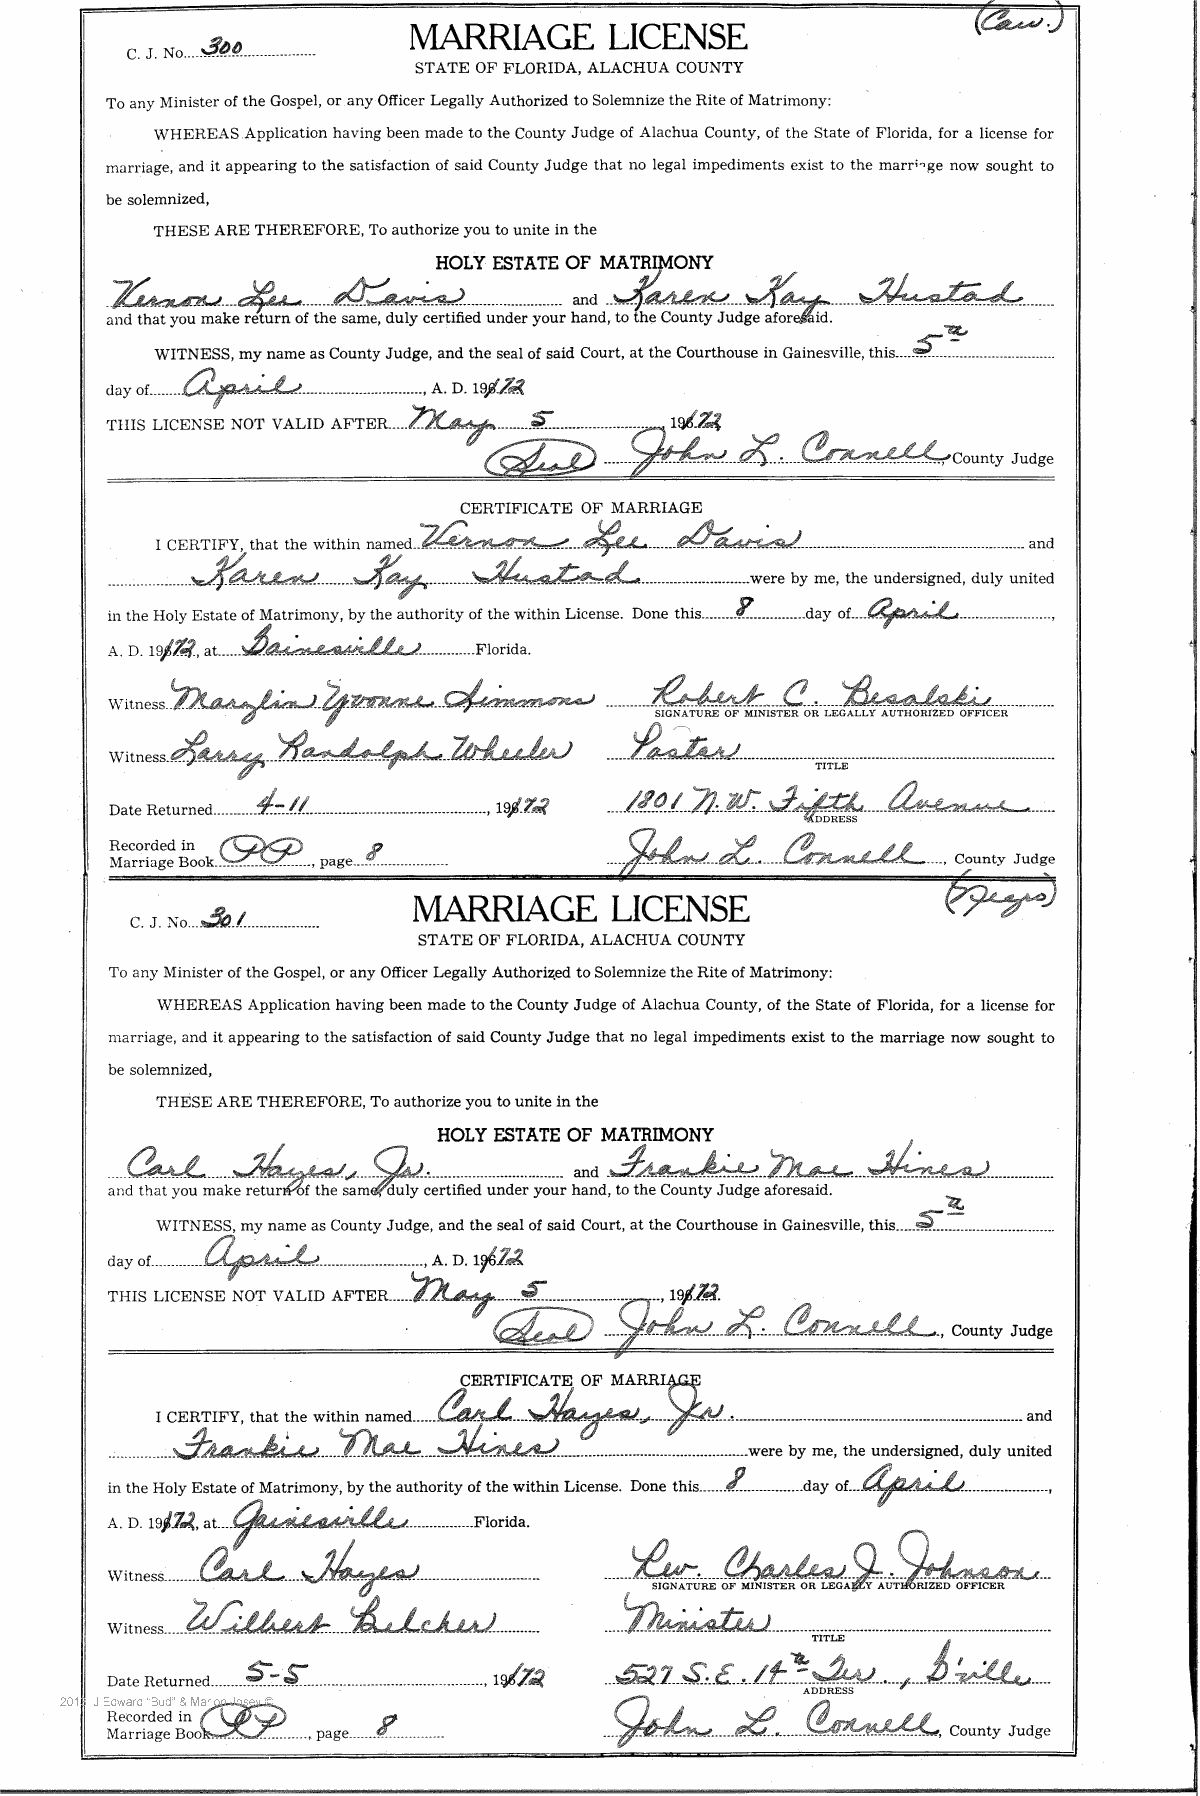 (Cau.)
C. J. No. 300
MARRIAGE LICENSE
STATE OF FLORIDA, ALACHUA COUNTY
To any Minister of the Gospel, or any Officer Legally Authorized to Solemnize the Rite of Matrimony:
WHEREAS Application having been made to the County Judge of Alachua County, of the State of Florida, for a license for
marriage, and it appearing to the satisfaction of said County Judge that no legal impediments exist to the marriage now sought to
be solemnized,
THESE ARE THEREFORE, To authorize you to unite in the
HOLY ESTATE OF MATRIMONY
Vernon Lee Davis and Karen Kay Hustad
and that you make return of the same, duly certified under your hand, to the County Judge aforesaid.
WITNESS, my name as County Judge, and the seal of said Court, at the Courthouse in Gainesville, this 5th
day of April, A. D. 1972
THIS LICENSE NOT VALID AFTER May 5, 1972
(Seal) John L. Connell, County Judge
CERTIFICATE OF MARRIAGE
I CERTIFY, that the within named Vernon Lee Davis and
Karen Kay Hustad were by me, the undersigned, duly united
in the Holy Estate of Matrimony, by the authority of the within License. Done this 8 day of April,
A. D. 1972, at Gainesville Florida.
Witness Marylin Yvonne Simmons Robert C. Besalski
SIGNATURE OF MINISTER OR LEGALLY AUTHORIZED OFFICER
Witness Larry Randolph Wheeler Pastor
TITLE
Date Returned 4-11, 1972 1801 N.W. Fifth Avenue
ADDRESS
Recorded in
Marriage Book PP, page 8 John L. Connell, County Judge
(Negro)
C. J. No. 301
MARRIAGE LICENSE
STATE OF FLORIDA, ALACHUA COUNTY
To any Minister of the Gospel, or any Officer Legally Authorized to Solemnize the Rite of Matrimony:
WHEREAS Application having been made to the County Judge of Alachua County, of the State of Florida, for a license for
marriage, and it appearing to the satisfaction of said County Judge that no legal impediments exist to the marriage now sought to
be solemnized,
THESE ARE THEREFORE, To authorize you to unite in the
HOLY ESTATE OF MATRIMONY
Carl Hayes, Jr. and Frankie Mae Hines
and that you make return of the same, duly certified under your hand, to the County Judge aforesaid.
WITNESS, my name as County Judge, and the seal of said Court, at the Courthouse in Gainesville, this 5th
day of April, A. D. 1972
THIS LICENSE NOT VALID AFTER May 5, 1972.
(Seal) John L. Connell, County Judge
CERTIFICATE OF MARRIAGE
I CERTIFY, that the within named Carl Hayes, Jr. and
Frankie Mae Hines were by me, the undersigned, duly united
in the Holy Estate of Matrimony, by the authority of the within License. Done this 8 day of April,
A. D. 1972, at Gainesville Florida.
Witness Carl Hayes Rev. Charles J. Johnson
SIGNATURE OF MINISTER OR LEGALLY AUTHORIZED OFFICER
Witness Wilbert Belcher Minister
TITLE
Date Returned 5-5, 1972 527 S.E. 14th Ter., G'ville
ADDRESS
J Edward "Bud" &
Recorded in
Marriage Book PP, page 8 John L. Connell, County Judge